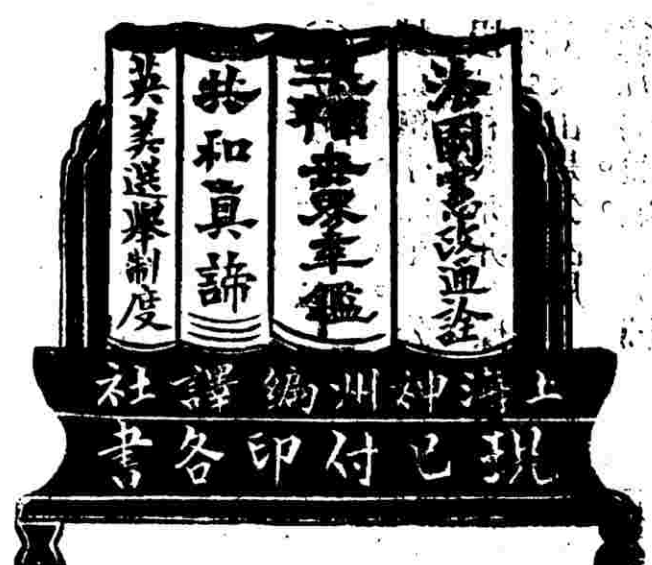 法國憲政通詮
世界年鑑
共和真諦
英美選舉制度
上海神州編譯社
現已付印各書